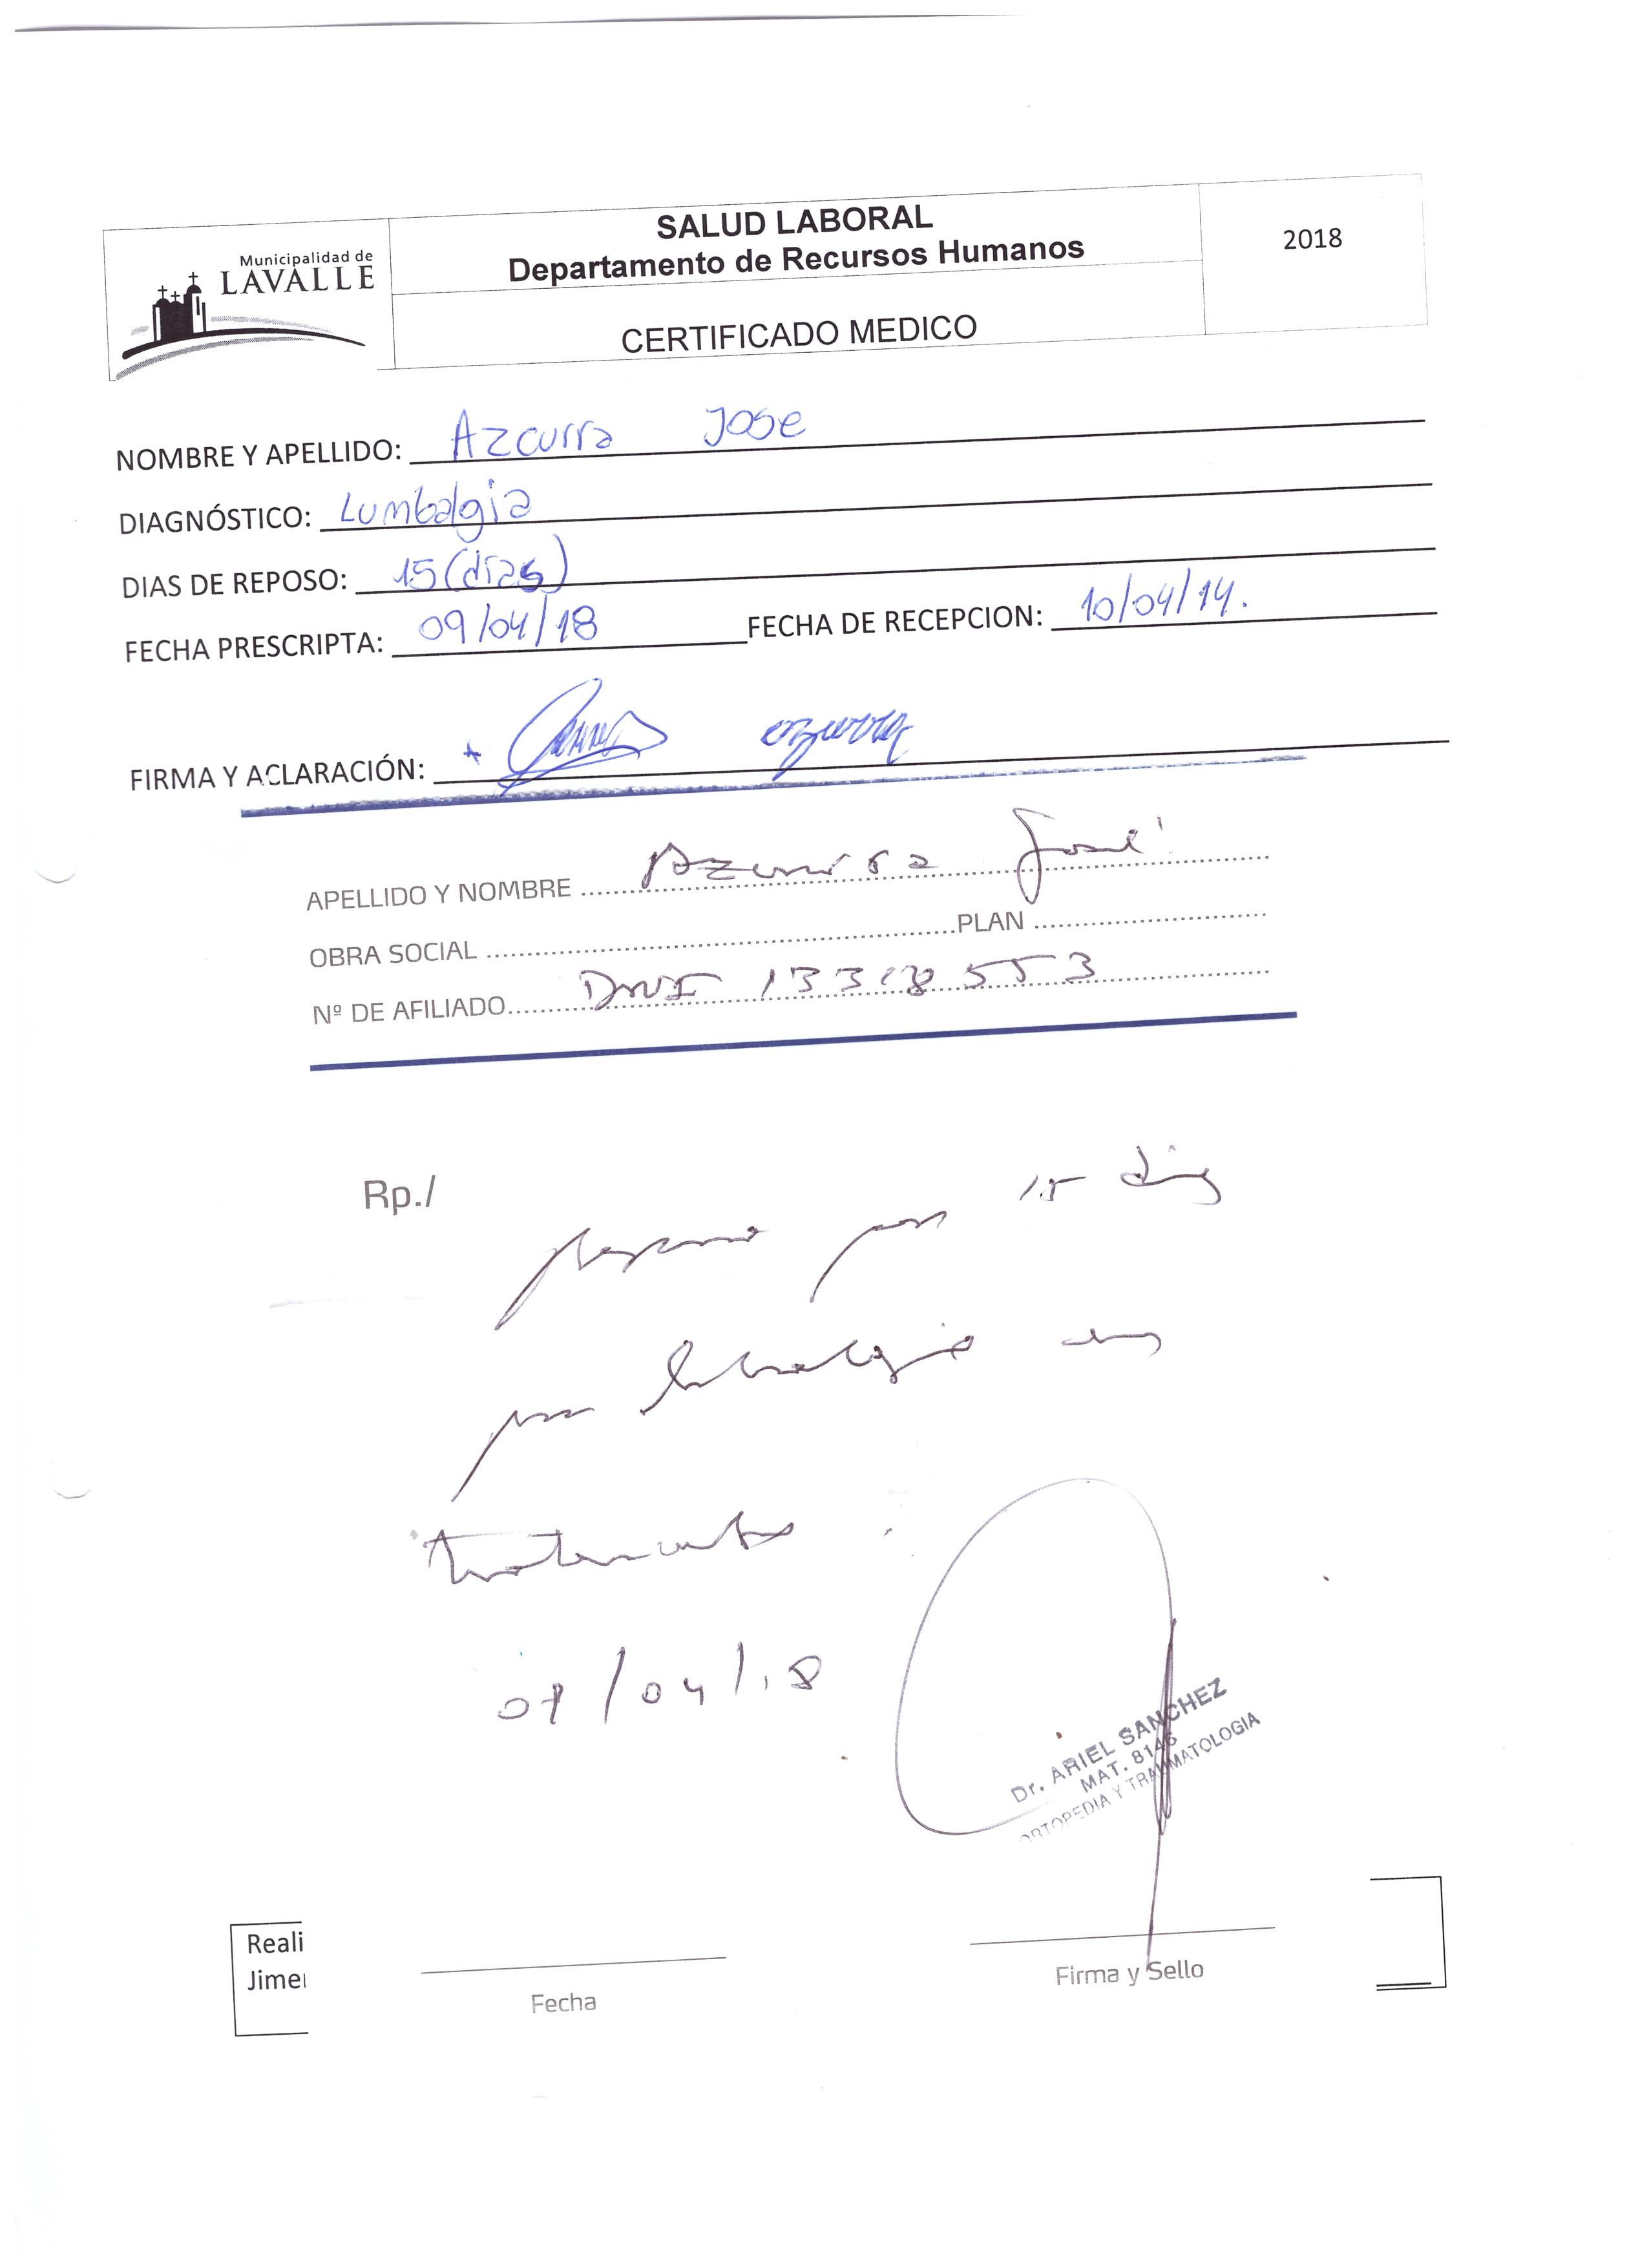 Municipalidad de
LAVALLE
SALUD LABORAL
Departamento de Recursos Humanos
CERTIFICADO MEDICO
2018
NOMBRE Y APELLIDO: Azcurra Jose
DIAGNÓSTICO: Lumbalgia
DIAS DE REPOSO: 15 (dias)
FECHA PRESCRIPTA: 09/04/18 FECHA DE RECEPCION: 10/04/14.
FIRMA Y ACLARACIÓN: azurra
APELLIDO Y NOMBRE Azcurra José
OBRA SOCIAL PLAN
Nº DE AFILIADO DNI 13318553
Rp./
Reposo por 15 dias
por lumbalgia en
tratamiento
09/04/18
Dr. ARIEL SANCHEZ
MAT. 8146
ORTOPEDIA Y TRAUMATOLOGIA
Reali
Jime
Fecha
Firma y Sello